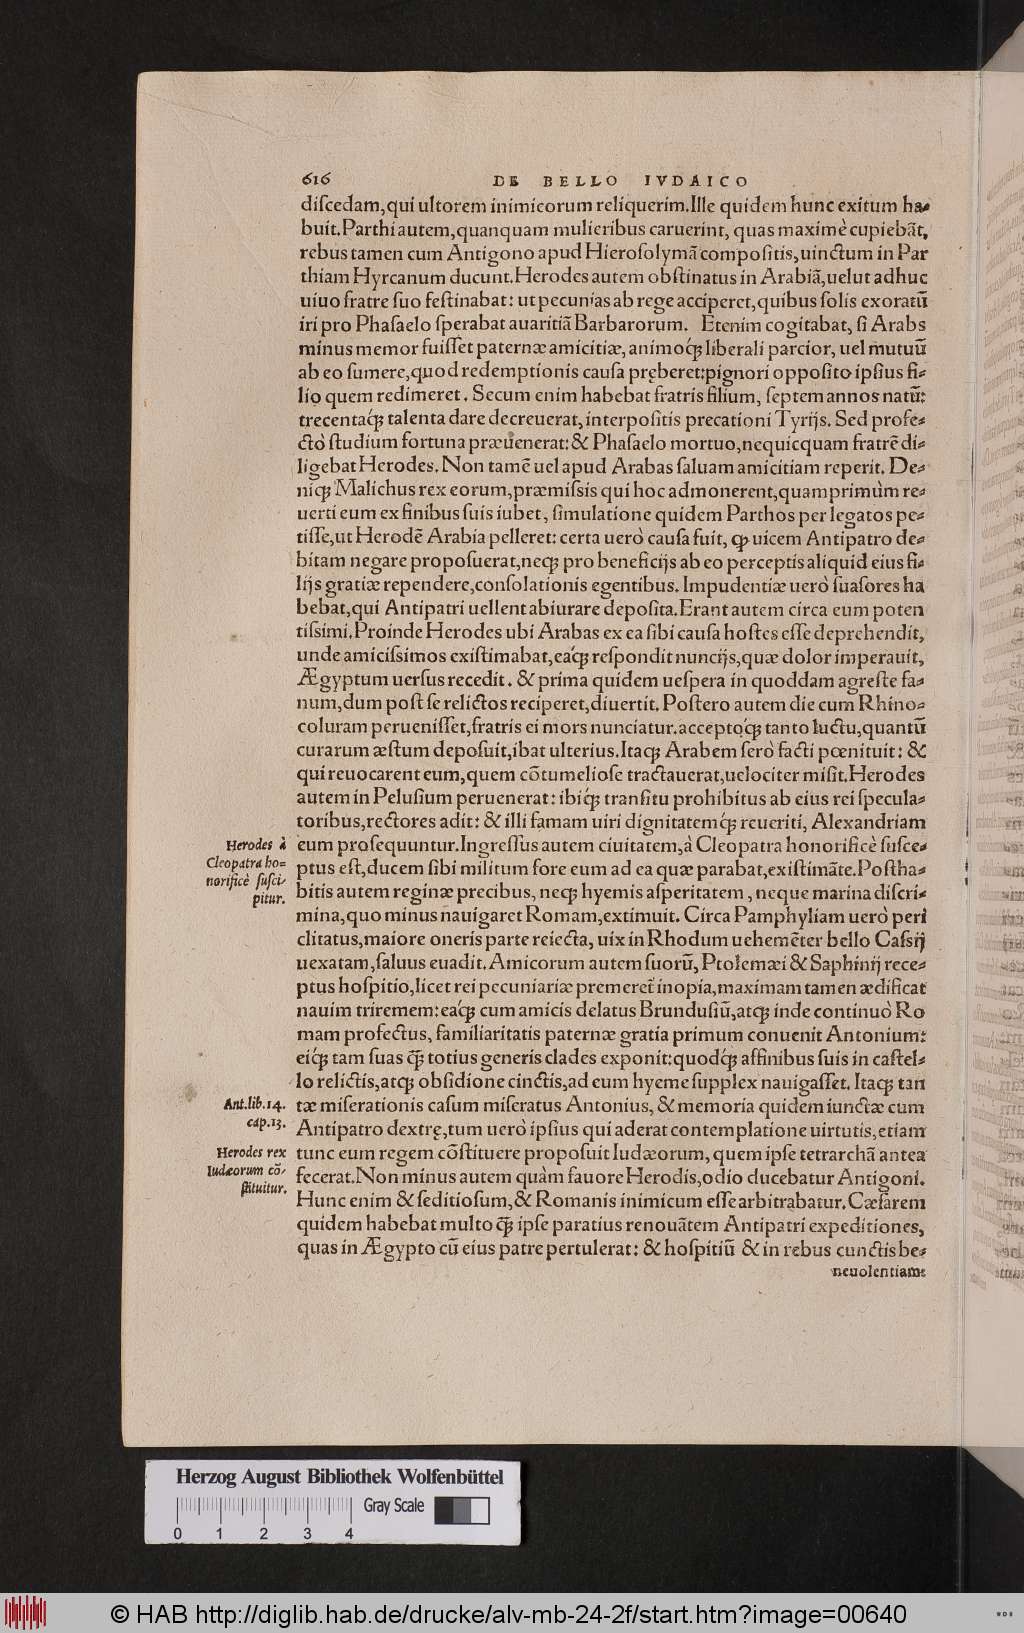 616 DE BELLO IVDAICO
discedam,qui ultorem inimicorum reliquerim.Ille quidem hunc exitum ha-
buit.Parthi autem,quanquam mulieribus caruerint, quas maximè cupiebāt,
rebus tamen cum Antigono apud Hierosolymā compositis,uinctum in Par
thiam Hyrcanum ducunt.Herodes autem obstinatus in Arabiā,uelut adhuc
uiuo fratre suo festinabat: ut pecunias ab rege acciperet,quibus solis exoratū
iri pro Phasaelo sperabat auaritiā Barbarorum. Etenim cogitabat, si Arabs
minus memor fuisset paternæ amicitiæ, animoq́; liberali parcior, uel mutuū
ab eo sumere,quod redemptionis causa pręberet:pignori opposito ipsius fi-
lio quem redimeret. Secum enim habebat fratris filium, septem annos natū:
trecentaq́; talenta dare decreuerat,interpositis precationi Tyrijs. Sed profe-
ctò studium fortuna præuenerat: & Phasaelo mortuo,nequicquam fratrē di-
ligebat Herodes. Non tamē uel apud Arabas saluam amicitiam reperit. De-
niq; Malichus rex eorum,præmissis qui hoc admonerent,quamprimùm re-
uerti eum ex finibus suis iubet, simulatione quidem Parthos per legatos pe-
tisse,ut Herodē Arabia pelleret: certa uerò causa fuit, ꝙ uicem Antipatro de-
bitam negare proposuerat,neq; pro beneficijs ab eo perceptis aliquid eius fi-
lijs gratiæ rependere,consolationis egentibus. Impudentiæ uerò suasores ha
bebat,qui Antipatri uellent abiurare deposita.Erant autem circa eum poten
tissimi.Proinde Herodes ubi Arabas ex ea sibi causa hostes esse deprehendit,
unde amicissimos existimabat,eaq́; respondit nuncijs,quæ dolor imperauit,
Ægyptum uersus recedit. & prima quidem uespera in quoddam agreste fa-
num,dum post se relictos reciperet,diuertit. Postero autem die cum Rhino-
coluram peruenisset,fratris ei mors nunciatur.acceptoq́; tanto luctu,quantū
curarum æstum deposuit,ibat ulterius.Itaq; Arabem serò facti pœnituit: &
qui reuocarent eum,quem cōtumeliose tractauerat,uelociter misit.Herodes
autem in Pelusium peruenerat: ibiq́; transitu prohibitus ab eius rei specula-
toribus,rectores adit: & illi famam uiri dignitatemq́; reueriti, Alexandriam
Herodes à
Cleopatra ho=
norificè susci-
pitur.
eum prosequuntur.Ingressus autem ciuitatem,à Cleopatra honorificè susce-
ptus est,ducem sibi militum fore eum ad ea quæ parabat,existimāte.Postha-
bitis autem reginæ precibus, neq; hyemis asperitatem, neque marina discri-
mina,quo minus nauigaret Romam,extimuit. Circa Pamphyliam uerò peri
clitatus,maiore oneris parte reiecta, uix in Rhodum uehemēter bello Cassij
uexatam,saluus euadit.Amicorum autem suorū, Ptolemæi & Saphinij rece-
ptus hospitio,licet rei pecuniariæ premeret̃ inopia,maximam tamen ædificat
nauim triremem:eaq́; cum amicis delatus Brundusiū,atq; inde continuò Ro
mam profectus, familiaritatis paternæ gratia primum conuenit Antonium:
eiq́; tam suas q̃; totius generis clades exponit:quodq́; affinibus suis in castel-
lo relictis,atq; obsidione cinctis,ad eum hyeme supplex nauigasset. Itaq; tan
Ant.lib.14.
cap.13.
Herodes rex
Iudæorum cō-
stituitur.
tæ miserationis casum miseratus Antonius, & memoria quidem iunctæ cum
Antipatro dextrę,tum uerò ipsius qui aderat contemplatione uirtutis,etiam
tunc eum regem cōstituere proposuit Iudæorum, quem ipse tetrarchā antea
fecerat.Non minus autem quàm fauore Herodis,odio ducebatur Antigoni.
Hunc enim & seditiosum,& Romanis inimicum esse arbitrabatur.Cæsarem
quidem habebat multo q̃; ipse paratius renouātem Antipatri expeditiones,
quas in Ægypto cū eius patre pertulerat: & hospitiū & in rebus cunctis be-
neuolentiam:
Herzog August Bibliothek Wolfenbüttel
0 1 2 3 4 Gray Scale
© HAB http://diglib.hab.de/drucke/alv-mb-24-2f/start.htm?image=00640